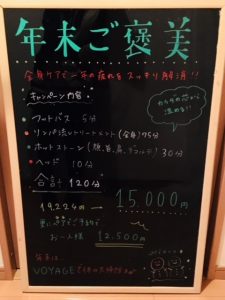 年末ご褒美
全身ケアで一年の疲れを スッキリ解消!!
キャンペーン内容
・フットバス 5分
・リンパ流しトリートメント(全身)75分
・ホットストーン(顔、首、肩、デコルテ)30分
・ヘッド 10分
合計 120分
からだの芯から
温める!!
19,224円→ 15,000円
更に ご予約で
お一人様 12,500円
年末は
VOYAGEで